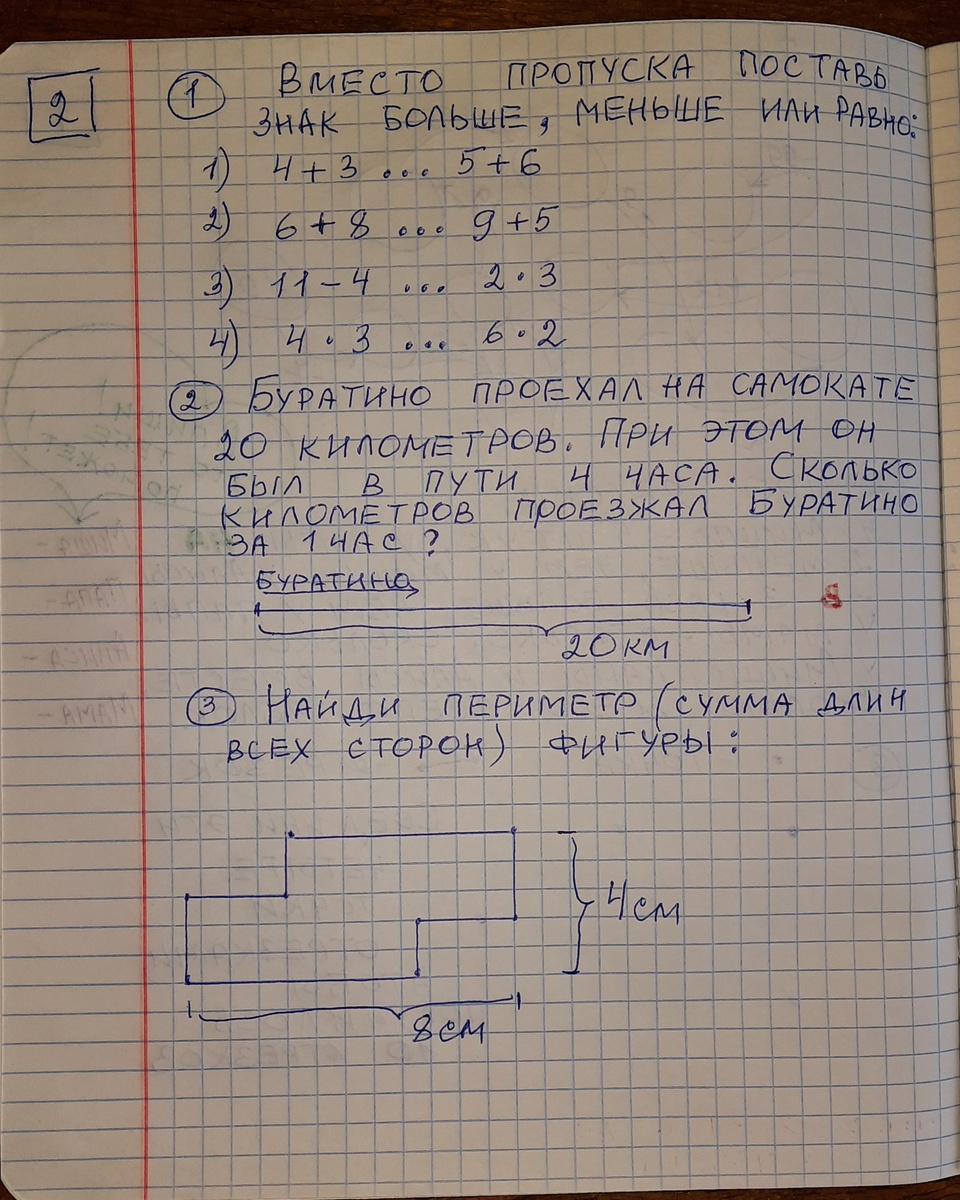 2
1 Вместо пропуска поставь
знак больше, меньше или равно:
1) 4 + 3 ... 5 + 6
2) 6 + 8 ... 9 + 5
3) 11 - 4 ... 2 · 3
4) 4 · 3 ... 6 · 2
2 Буратино проехал на самокате
20 километров. При этом он
был в пути 4 часа. Сколько
километров проезжал Буратино
за 1 час?
Буратино
20 км
3 Найди периметр (сумма длин
всех сторон) фигуры:
4 см
8 см